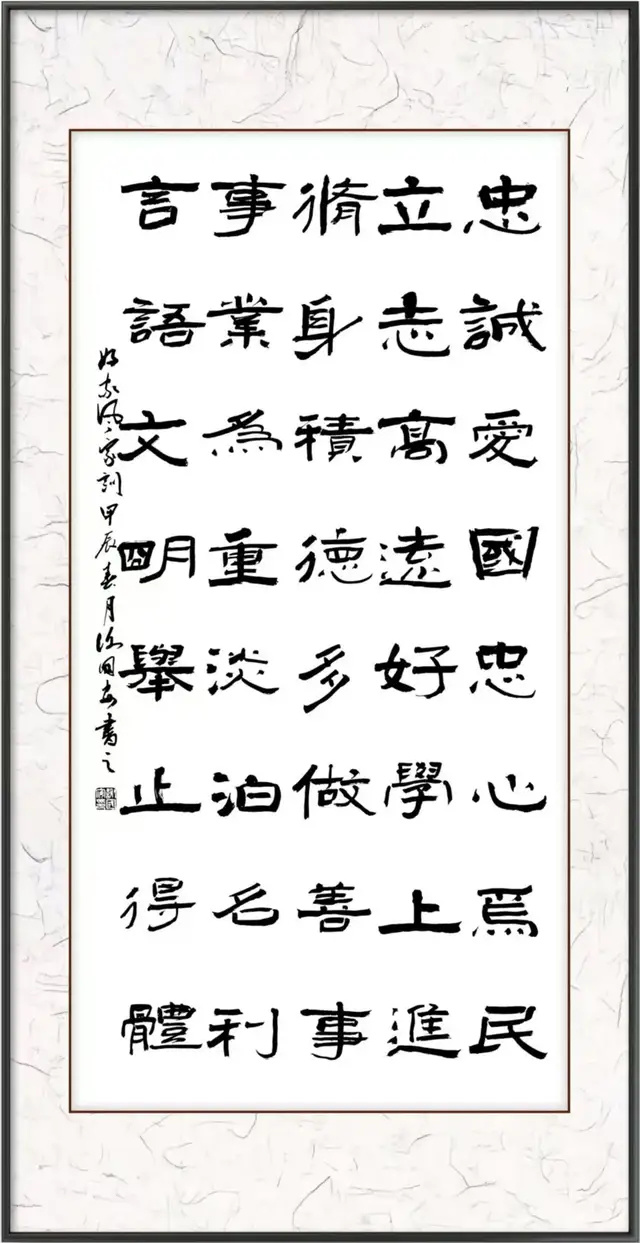 忠誠愛國忠心為民
立志高遠好學上進
脩身積德多做善事
事業為重淡泊名利
言語文明舉止得體
好家風家訓甲辰春月徐國安書之